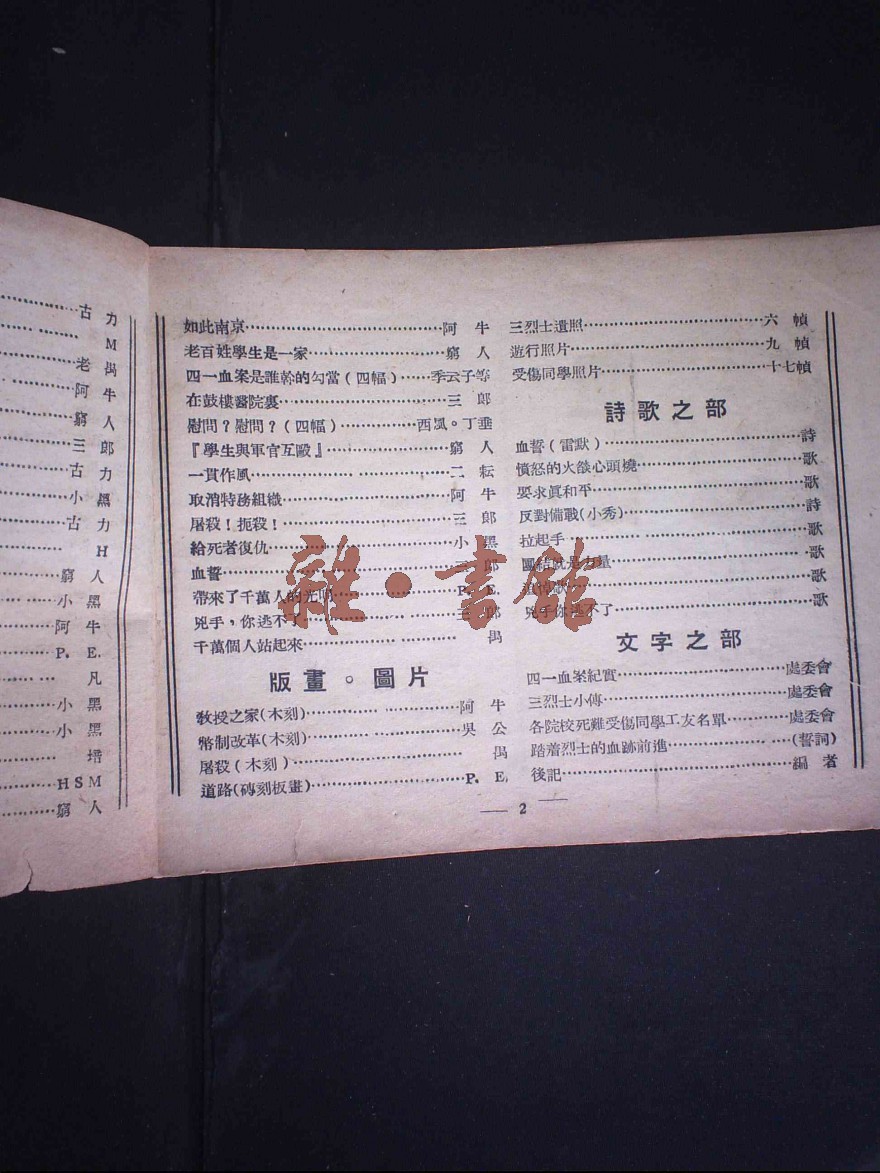 古力
M
老禺
阿牛
窮人
三郎
古力
小黑
古力
H
窮人
小黑
阿牛
P. E.
凡
小黑
小黑
HSM
窮人
如此南京………阿牛
老百姓學生是一家………窮人
四一血案是誰幹的勾當(四幅)……季云子等
在鼓樓醫院裏………三郎
慰問?慰問?(四幅)………西風。丁垂
『學生與軍官互毆』………窮人
一貫作風………二耘
取消特務組織………阿牛
屠殺!扼殺!………三郎
給死者復仇………小黑
血誓………三郎
帶來了千萬人的光明………P. E.
兇手,你逃不了………三郎
千萬個人站起來………禺
版畫。圖片
敎授之家(木刻)………阿牛
幣制改革(木刻)………吳公
屠殺(木刻)………禺
道路(磚刻板畫)………P. E.
三烈士遺照………六幀
遊行照片………九幀
受傷同學照片………十七幀
詩歌之部
血誓(雷默)………詩
憤怒的火燄心頭燒………歌
要求眞和平………歌
反對備戰(小秀)………詩
拉起手………歌
團結就是力量………歌
追悼歌………歌
兇手你逃不了………歌
文字之部
四一血案紀實………處委會
三烈士小傳………處委會
各院校死難受傷同學工友名單………處委會
踏着烈士的血跡前進………(誓詞)
後記………編者
— 2 —
雜·書館